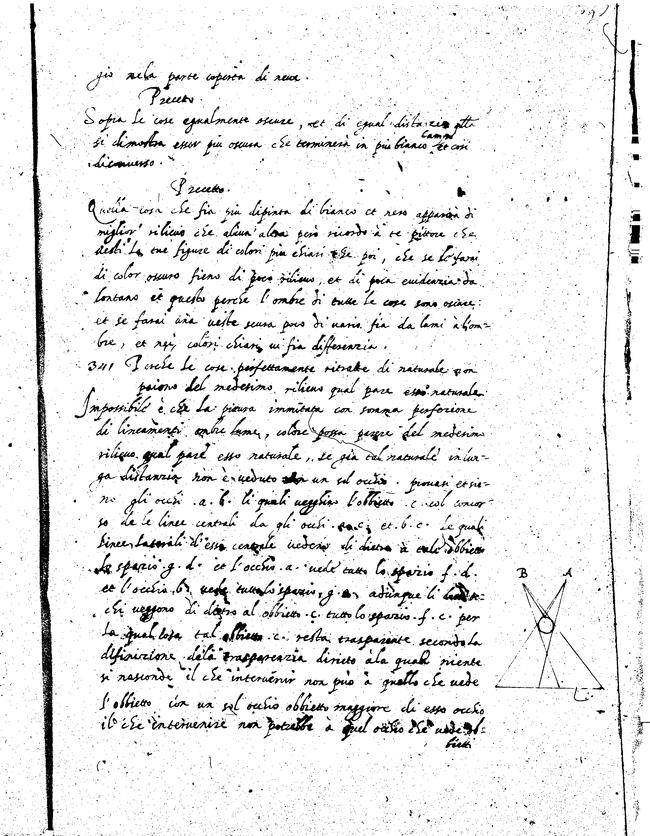 gio nella parte coperta di neve.
Precetto.
Sopra le cose egualmente oscure, et di egual distanzia quella
si dimostra esser piu oscura che terminerà in più bianco campo et cosi
di converso.
Precetto.
Quella cosa che fia più dipinta di bianco et nero apparirà di
miglior' rilievo che alcun' altra però ricordo à te pittore che
vesti le tue figure di colori piu chiari che poi, che se le farai
di color oscuro fieno di poco rilievo, et di poca evidenzia da
lontano et questo perche l'ombre di tutte le cose sono oscure:
et se farai una veste scura poco di vario fia da lumi a l'om=
bre, et nei colori chiari vi fia differenzia.
341 Perche le cose perfettamente ritratte di naturale non
paiono del medesimo rilievo qual pare esso naturale
Impossibile è che la pitura immitata con somma perfezione
di lineamenti ombre lume, colore possa parere del medesimo
rilievo qual pare esso naturale, se già tal naturale in lun=
ga distanzia non è veduto con un sol occhio. provasi et sie=
no gli occhi .a. b. li quali vegghino l'obbietto .c. col concor=
so de le linee centrali da gli occhi .a.c. et .b.c. le quali
linee laterali d'essa centrale vedeno di dietro à tale obbietto
lo spazio g. d. et l'occhio .a. vede tutto lo spazio f. d.
et l'occhio .b. vede tutto lo spazio .g. adunque li
chi veggono di dietro al obbietto .c. tutto lo spazio .f. c. per
la qual cosa tal obbietto .c. resta trasparente secondo la
difinizione dela trasparenzia dirieto à la quale niente
si nasconde il che intervenir non può à quello che vede
l'obbietto con un sol occhio obbietto maggiore di esso occhio
il che intervenire non potrebbe à quel occhio che vede ob=
bietti
B A